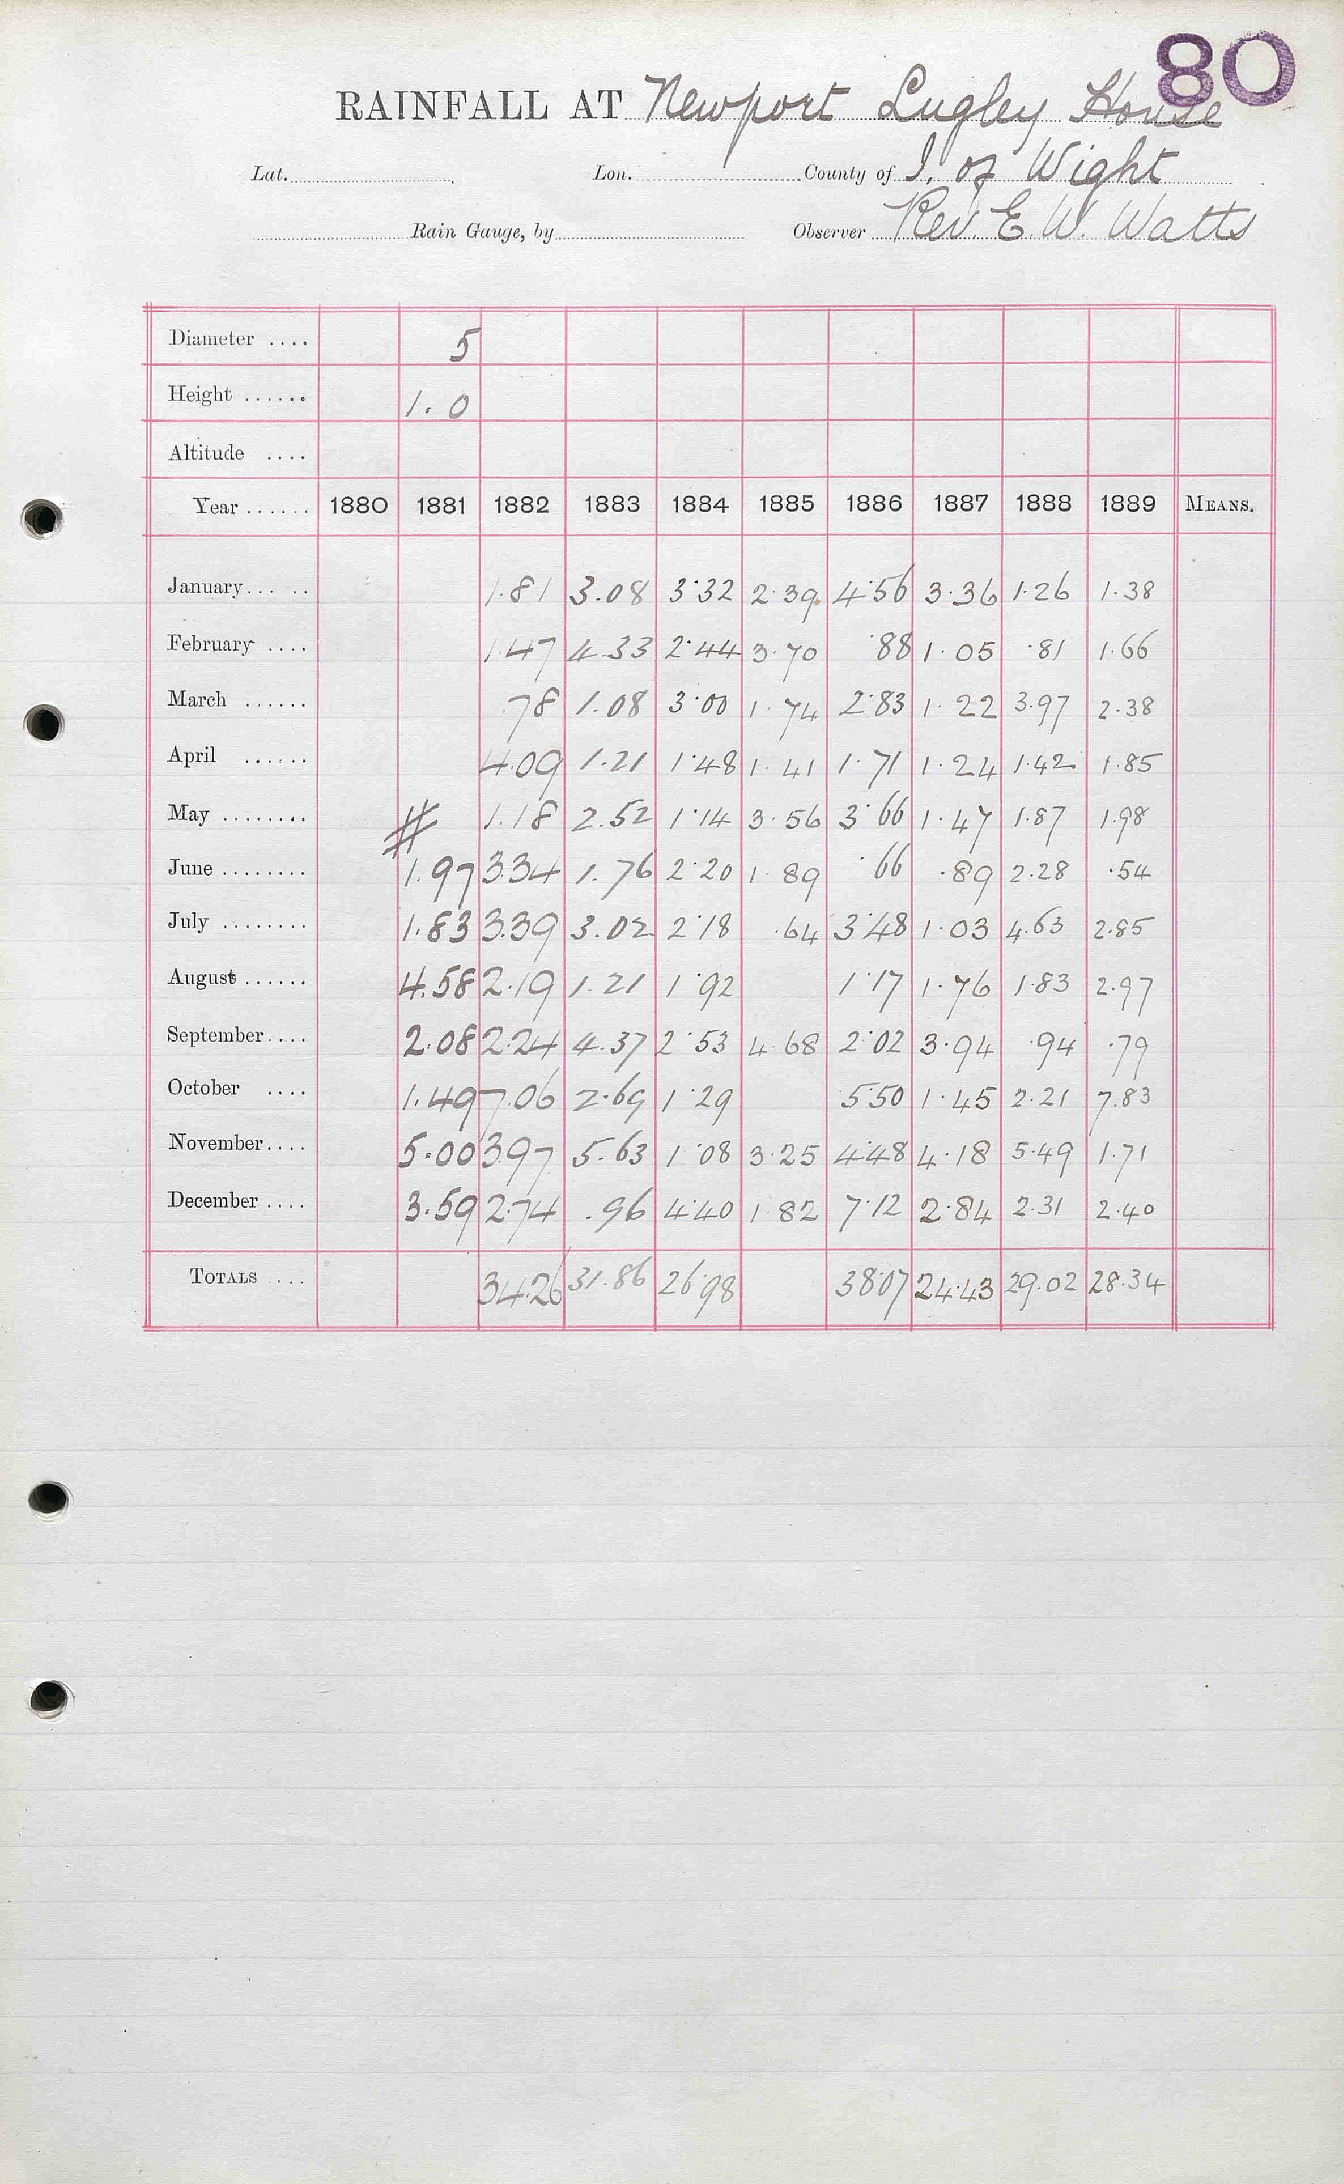 80
RAINFALL AT Newport Lugley House
Lat. Lon. County of I. of Wight
Rain Gauge, by Observer Rev. E. W. Watts
Diameter .... 5
Height ...... 1.0
Altitude ....
Year ...... 1880 1881 1882 1883 1884 1885 1886 1887 1888 1889 MEANS.
January ... .. 1.81 3.08 3.32 2.39 4.56 3.36 1.26 1.38
February .... 1.47 4.33 2.44 3.70 .88 1.05 .81 1.66
March ...... .78 1.08 3.00 1.74 2.83 1.22 3.97 2.38
April ...... 4.09 1.21 1.48 1.41 1.71 1.24 1.42 1.85
May ........ # 1.18 2.52 1.14 3.56 3.66 1.47 1.87 1.98
June ........ 1.97 3.34 1.76 2.20 1.89 .66 .89 2.28 .54
July ........ 1.83 3.39 3.02 2.18 .64 3.48 1.03 4.63 2.85
August ...... 4.58 2.19 1.21 1.92 1.17 1.76 1.83 2.97
September .... 2.08 2.24 4.37 2.53 4.68 2.02 3.94 .94 .79
October .... 1.49 7.06 2.69 1.29 5.50 1.45 2.21 7.83
November .... 5.00 3.97 5.63 1.08 3.25 4.48 4.18 5.49 1.71
December .... 3.59 2.74 .96 4.40 1.82 7.12 2.84 2.31 2.40
TOTALS .... 34.26 31.86 26.98 38.07 24.43 29.02 28.34